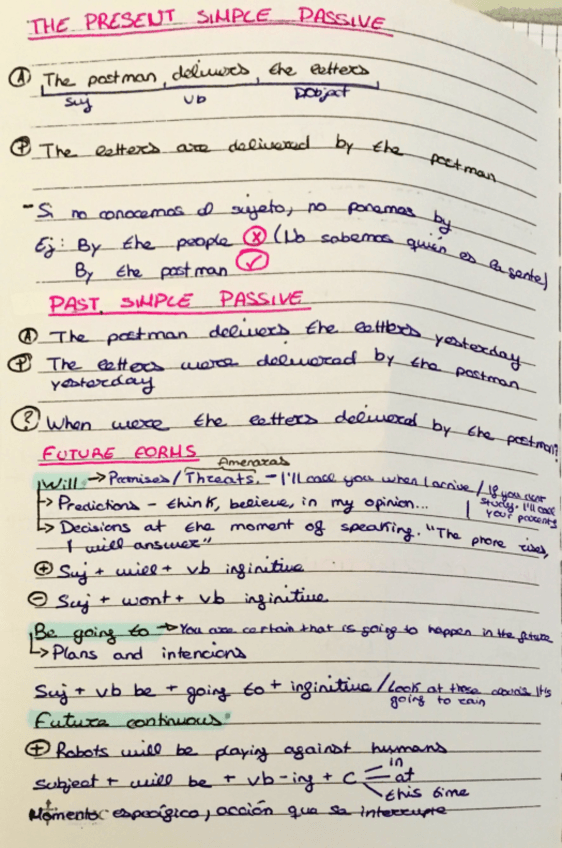 THE PRESENT SIMPLE PASSIVE
Ⓐ The postman, delivers, the letters,
Suj vb DObject
Ⓟ The letters are delivered by the postman
- Si no conocemos el sujeto, no ponemos by
Ej: By the people ⓧ (No sabemos quién es la gente)
By the postman ✓
PAST SIMPLE PASSIVE
Ⓐ The postman delivers the letters yesterday
Ⓟ The letters were delivered by the postman
yesterday
? When were the letters delivered by the postman?
FUTURE FORMS
Amenazas
Will → Promises / Threats. - I'll call you when I arrive / If you don't
study, I'll call your parents
↳ Predictions - think, believe, in my opinion...
↳ Decisions at the moment of speaking. "The phone rises,
I will answer"
⊕ Suj + will + vb infinitive
⊖ Suj + wont + vb infinitive
Be going to → You are certain that is going to happen in the future
↳ Plans and intencions
Suj + vb be + going to + infinitive / Look at those clouds It's
going to rain
Future continuous
⊕ Robots will be playing against humans
in
subject + will be + vb-ing + C at
this time
Momento específico, acción que se interrumpe